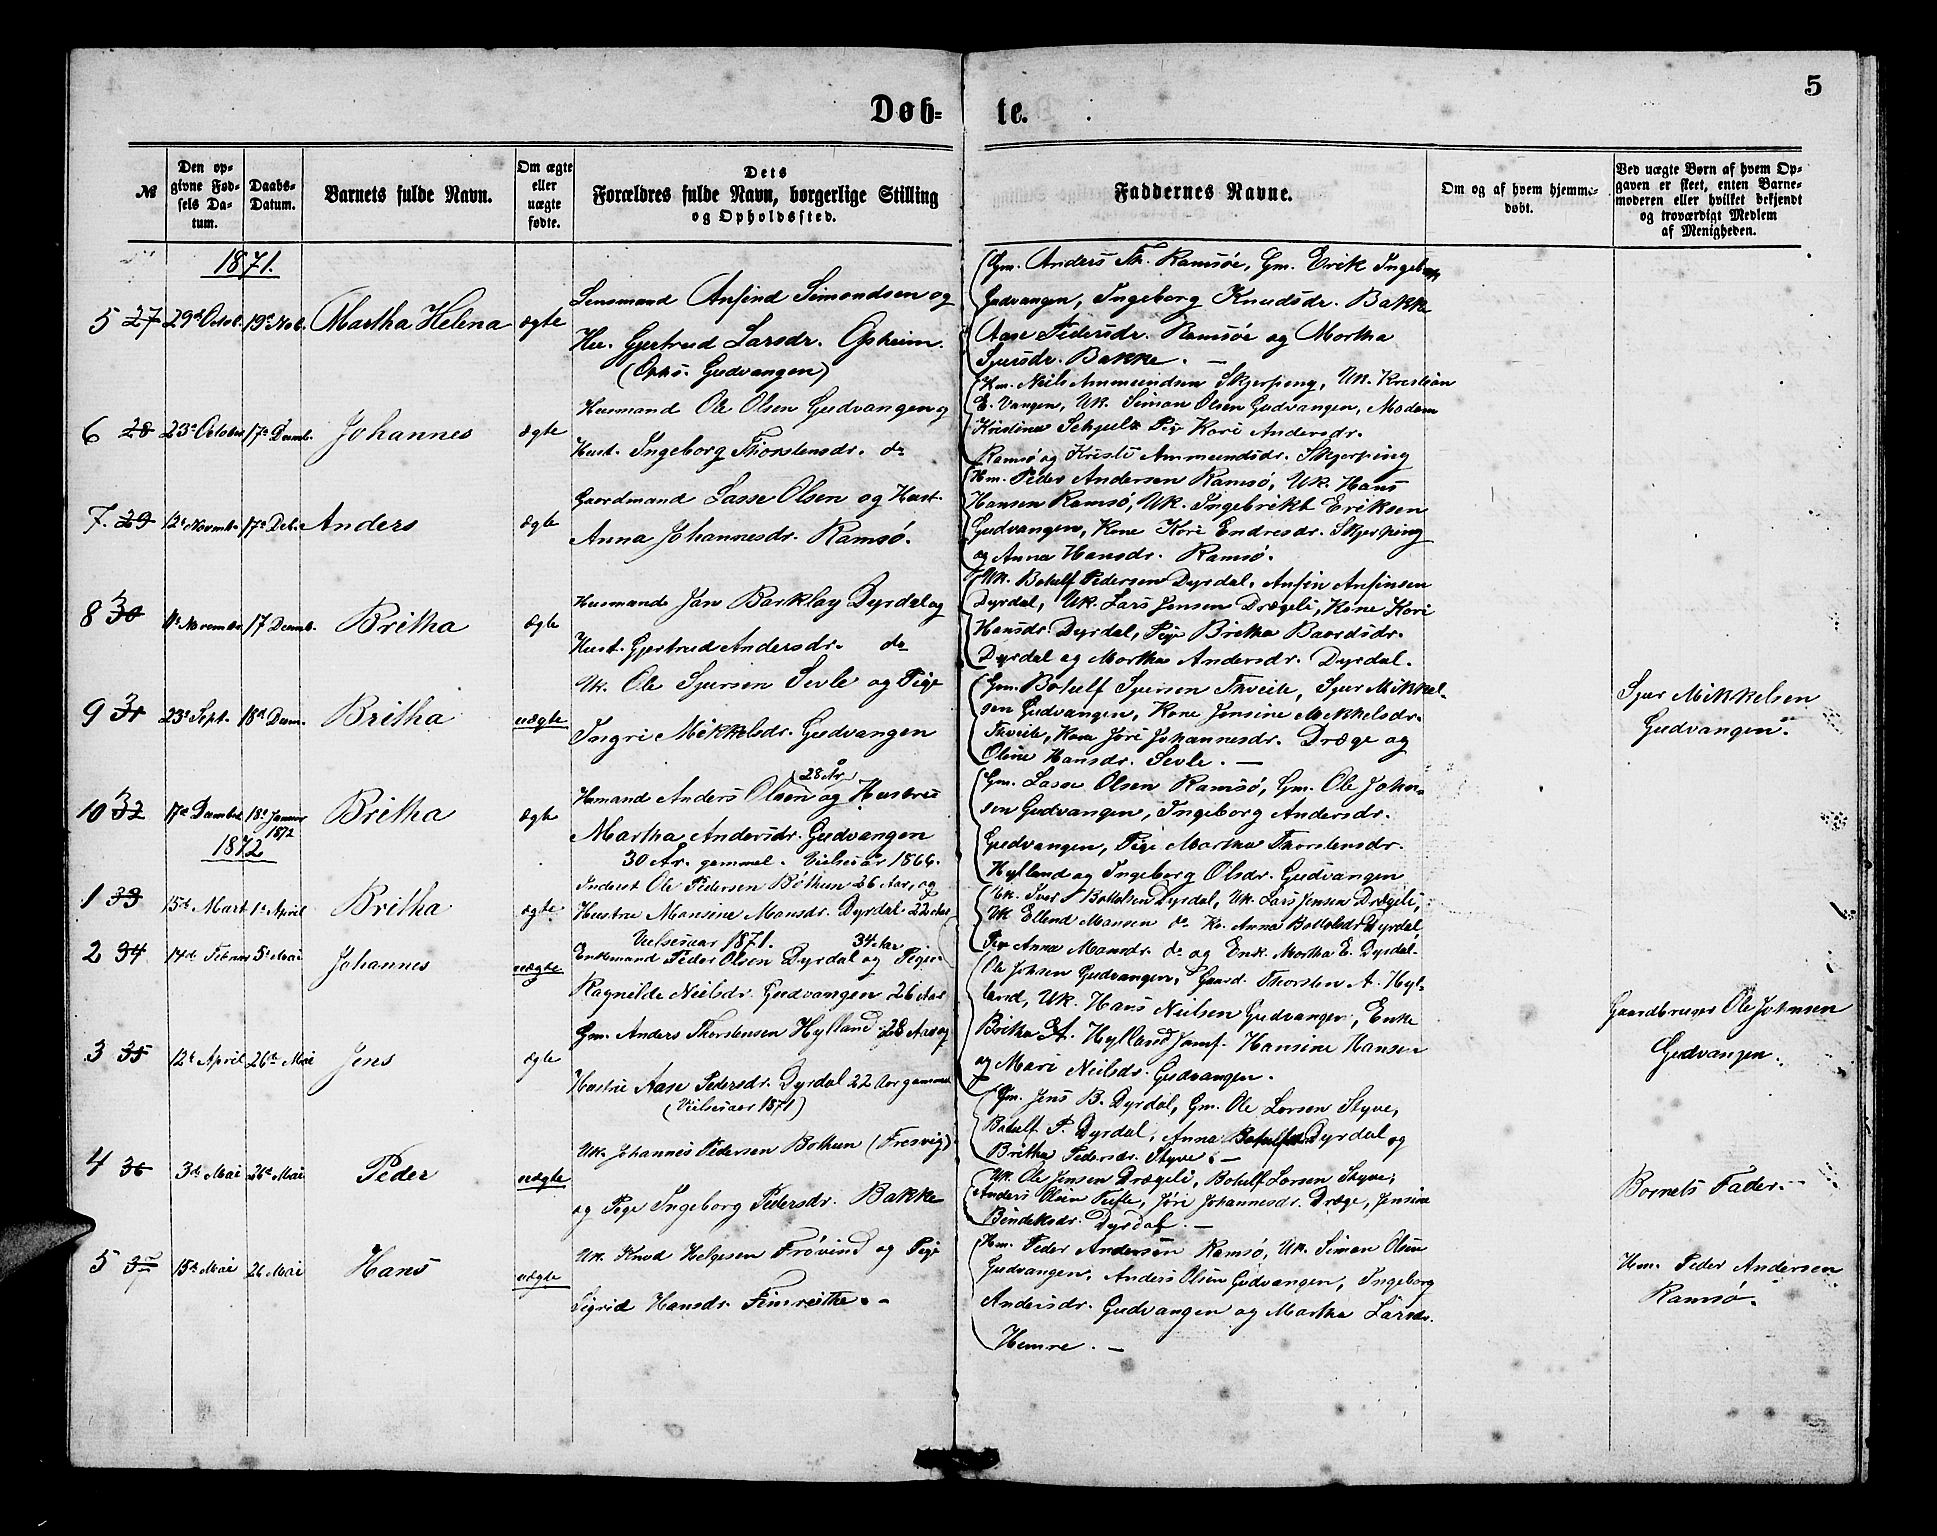 5
Døb=
te.
№
Den op-
givne Fød-
sels Da-
tum.
Daabs-
Datum.
Barnets fulde Navn.
Om ægte
eller
uægte
fødte.
Dets
Forældres fulde Navn, borgerlige Stilling
og Opholdssted.
Faddernes Navne.
Om og af hvem hjemme-
døbt.
Ved uægte Børn af hvem Op-
gaven er skeet, enten Barne-
moderen eller hvilket bekjendt
og troværdigt Medlem
af Menigheden.
1871.
5 27 29de Octob. 19de Nob. Martha Helena ægte
Lensmand Anfind Simondsen og
Hu. Gjertrud Larsdr. Opheim.
(Opks. Gudvangen)
Gm. Anders Th. Ramsöe, Gm. Erik Ingebr.
Gudvangen, Ingeborg Knudsdr. Bakke
Aase Pedersdr. Ramsöe og Martha
Sjursdr. Bakke. —
6 28 23de October 17de Decmb. Johannes ægte
Husmand Ole Olsen Gudvangen og
Hust. Ingeborg Thorstensdr. do
Hm. Neils Ammundsen Skjerping, Uk. Kristian
E. Vangen, Uk. Simon Olsen Gudvangen, Madam
Kristine Pige Kari Andersdr.
Ramsö og Kristi Ammundsdr. Skjerping
7. 29 12te Novmb. 17de Deb. Anders ægte
Gaardmand Lasse Olsen og Hust.
Anna Johannesdr. Ramsö.
Hm. Peder Andersen Ramsö, Uk. Hans
Hansen Ramsö, Uk. Ingebrikt Eriksen
Gudvangen, Kone Kari Endresdr. Skjerping
og Anna Hansdr. Ramsö.
8 30 Novembr. 17 Decmb. Britha ægte
Husmand Jan Barklay Dyrdal og
Hust. Gjertrud Andersdr. do
Uk. Botulf Pedersen Dyrdal, Anfin Anfinsen
Dyrdal, Uk. Lars Jensen Drægeli, Kone Kari
Hansdr. Dyrdal, Pige Britha Baardsdr.
Dyrdal og Martha Andersdr. Dyrdal.
9 31 23de Sept. 18de Decm. Britha uægte
Uk. Ole Sjursen Sevle og Pige
Ingri Mikkelsdr. Gudvangen
Gm. Botulf Sjursen Thveite, Sjur Mikkel-
sen Gudvangen, Kone Jensine Mikkelsdr.
Thveite, Kone Jøri Johannesdr. Dræge og
Oline Hansdr. Sevle. —
Sjur Mikkelsen
Gudvangen.
10 32 17de Decmber 18de Januar 1872 Britha ægte
(28 År)
Husmand Anders Olsen og Hustrue
Martha Andersdr. Gudvangen
30 År. gammel. Vielsesår 1866.
Gm. Lasse Olsen Ramsö, Gm. Ole John-
sen Gudvangen, Ingeborg Andersdr.
Gudvangen, Pige Martha Thorstensdr.
Hylland og Ingeborg Olsdr. Gudvangen
1872
1 33 15de Mart 1ste April Britha ægte
Inderst Ole Pedersen Bothun 26 Aar, og
Hustru Mansine Mansdr. Dyrdal 22 Aar
Vielsesaar 1871.
Uk. Iver Bottolsen Dyrdal, Uk. Lars Jensen Drægeli,
Uk Ellend Mansen do Ko. Anna Bottolsdr Dyrdal,
Pige Anna Mansdr. do og Enk. Martha E. Dyrdal.
2 34 14de Februar 5te Mai Johannes uægte
34 Aar
Enkemand Peder Olsen Dyrdal og Pige
Ragnilde Nielsdr. Gudvangen 26 Aar
Ole Johsen Gudvangen, Gaard. Thorsten A. Hyl-
land, Uk. Hans Nielsen Gudvangen, Enke
Britha A. Hylland Jomf. Hansine Hansen
og Mari Neilsdr. Gudvangen.
Gaardbruger Ole Johnsen
Gudvangen.
3 35 12te April 26de Mai Jens ægte
Gm. Anders Thorstensen Hylland 28 Aar og
Hustru Aase Pedersdr. Dyrdal 22 Aar gammel
(Vielsesaar 1871)
Gm. Jens B. Dyrdal, Gm. Ole Larsen Styve,
Botulf P. Dyrdal, Anna Botulfsdr Dyrdal og
Britha Pedersdr. Styve. —
4 36 3de Mai 26de Mai Peder uægte
Uk. Johannes Pedersen Bothun (Fresvig)
og Pige Ingeborg Pedersdr. Bakke
Uk. Ole Jensen Drægeli, Botulf Larsen Styve,
Anders Olsen Tufte, Jøri Johannesdr. Dræge, Jensine
Bendiksdr. Dyrdal. —
Barnets Fader.
5 37 15de Mai 26 Mai Hans uægte
Uk. Knud Helgesen Frövind og Pige
Sigrid Hansdr. Fimreithe. -
Hm. Peder Andersen Ramsö, Uk. Simon Olsen
Gudvangen, Anders Olsen Gudvangen, Ingeborg
Andersdr. Gudvangen og Martha Larsdr.
Hemre. —
Hm. Peder Andersen
Ramsö.